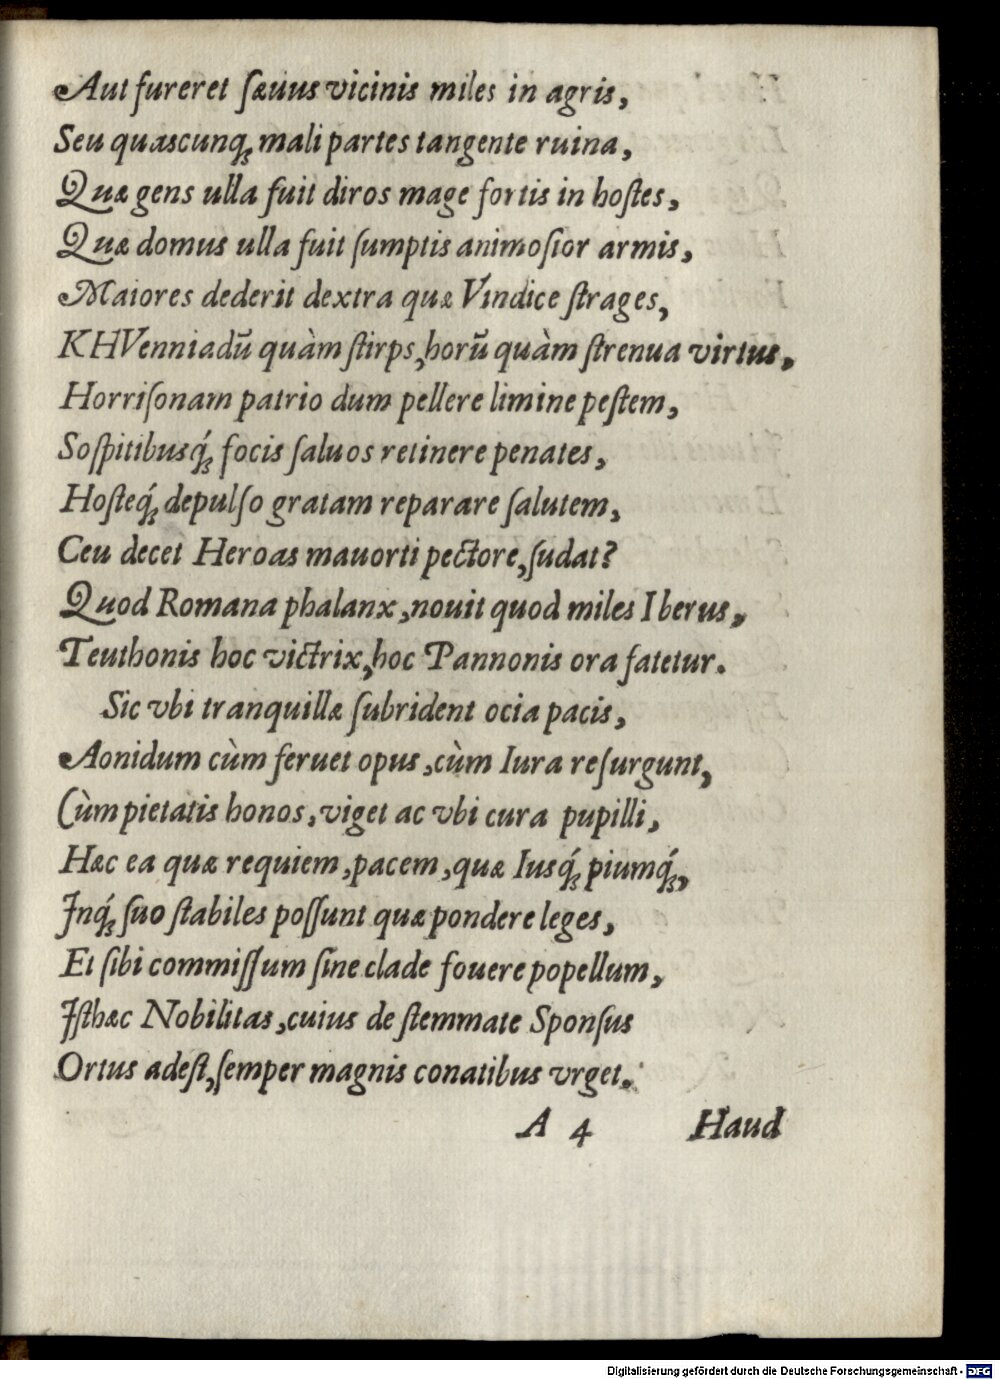 Aut fureret ſæuus vicinis miles in agris,
Seu quascunq; mali partes tangente ruina,
Quæ gens ulla fuit diros mage fortis in hoſtes,
Quæ domus ulla fuit ſumptis animoſior armis,
Maiores dederit dextra quæ Vindice ſtrages,
KHVenniadũ quàm ſtirps, horũ quàm ſtrenua virtus,
Horriſonam patrio dum pellere limine peſtem,
Soſpitibusq́; focis ſaluos retinere penates,
Hoſteq́; depulſo gratam reparare ſalutem,
Ceu decet Heroas mauorti pectore, ſudat?
Quod Romana phalanx, nouit quod miles Iberus,
Teuthonis hoc victrix, hoc Pannonis ora fatetur.
Sic vbi tranquillæ ſubrident ocia pacis,
Aonidum cùm feruet opus, cùm Iura reſurgunt,
Cùm pietatis honos, viget ac vbi cura pupilli,
Hæc ea quæ requiem, pacem, quæ Iusq́; piumq́;,
Inq́; ſuo ſtabiles poſſunt quæ pondere leges,
Et ſibi commiſſum ſine clade fouere popellum,
Iſthæc Nobilitas, cuius de ſtemmate Sponſus
Ortus adeſt, ſemper magnis conatibus vrget.
A 4 Haud
Digitalisierung gefördert durch die Deutsche Forschungsgemeinschaft - DFG